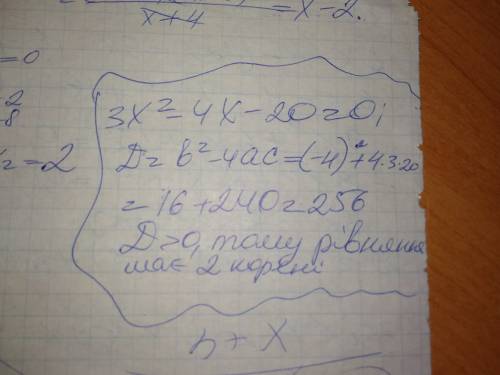 x+4 = x-2.
=0
2
-8
3x²-4x-20=0;
x₂=2
D= b²-4ac=(-4)²+4·3·20
=16+240=256
D>0, тому рівняння
має 2 корені
x+4